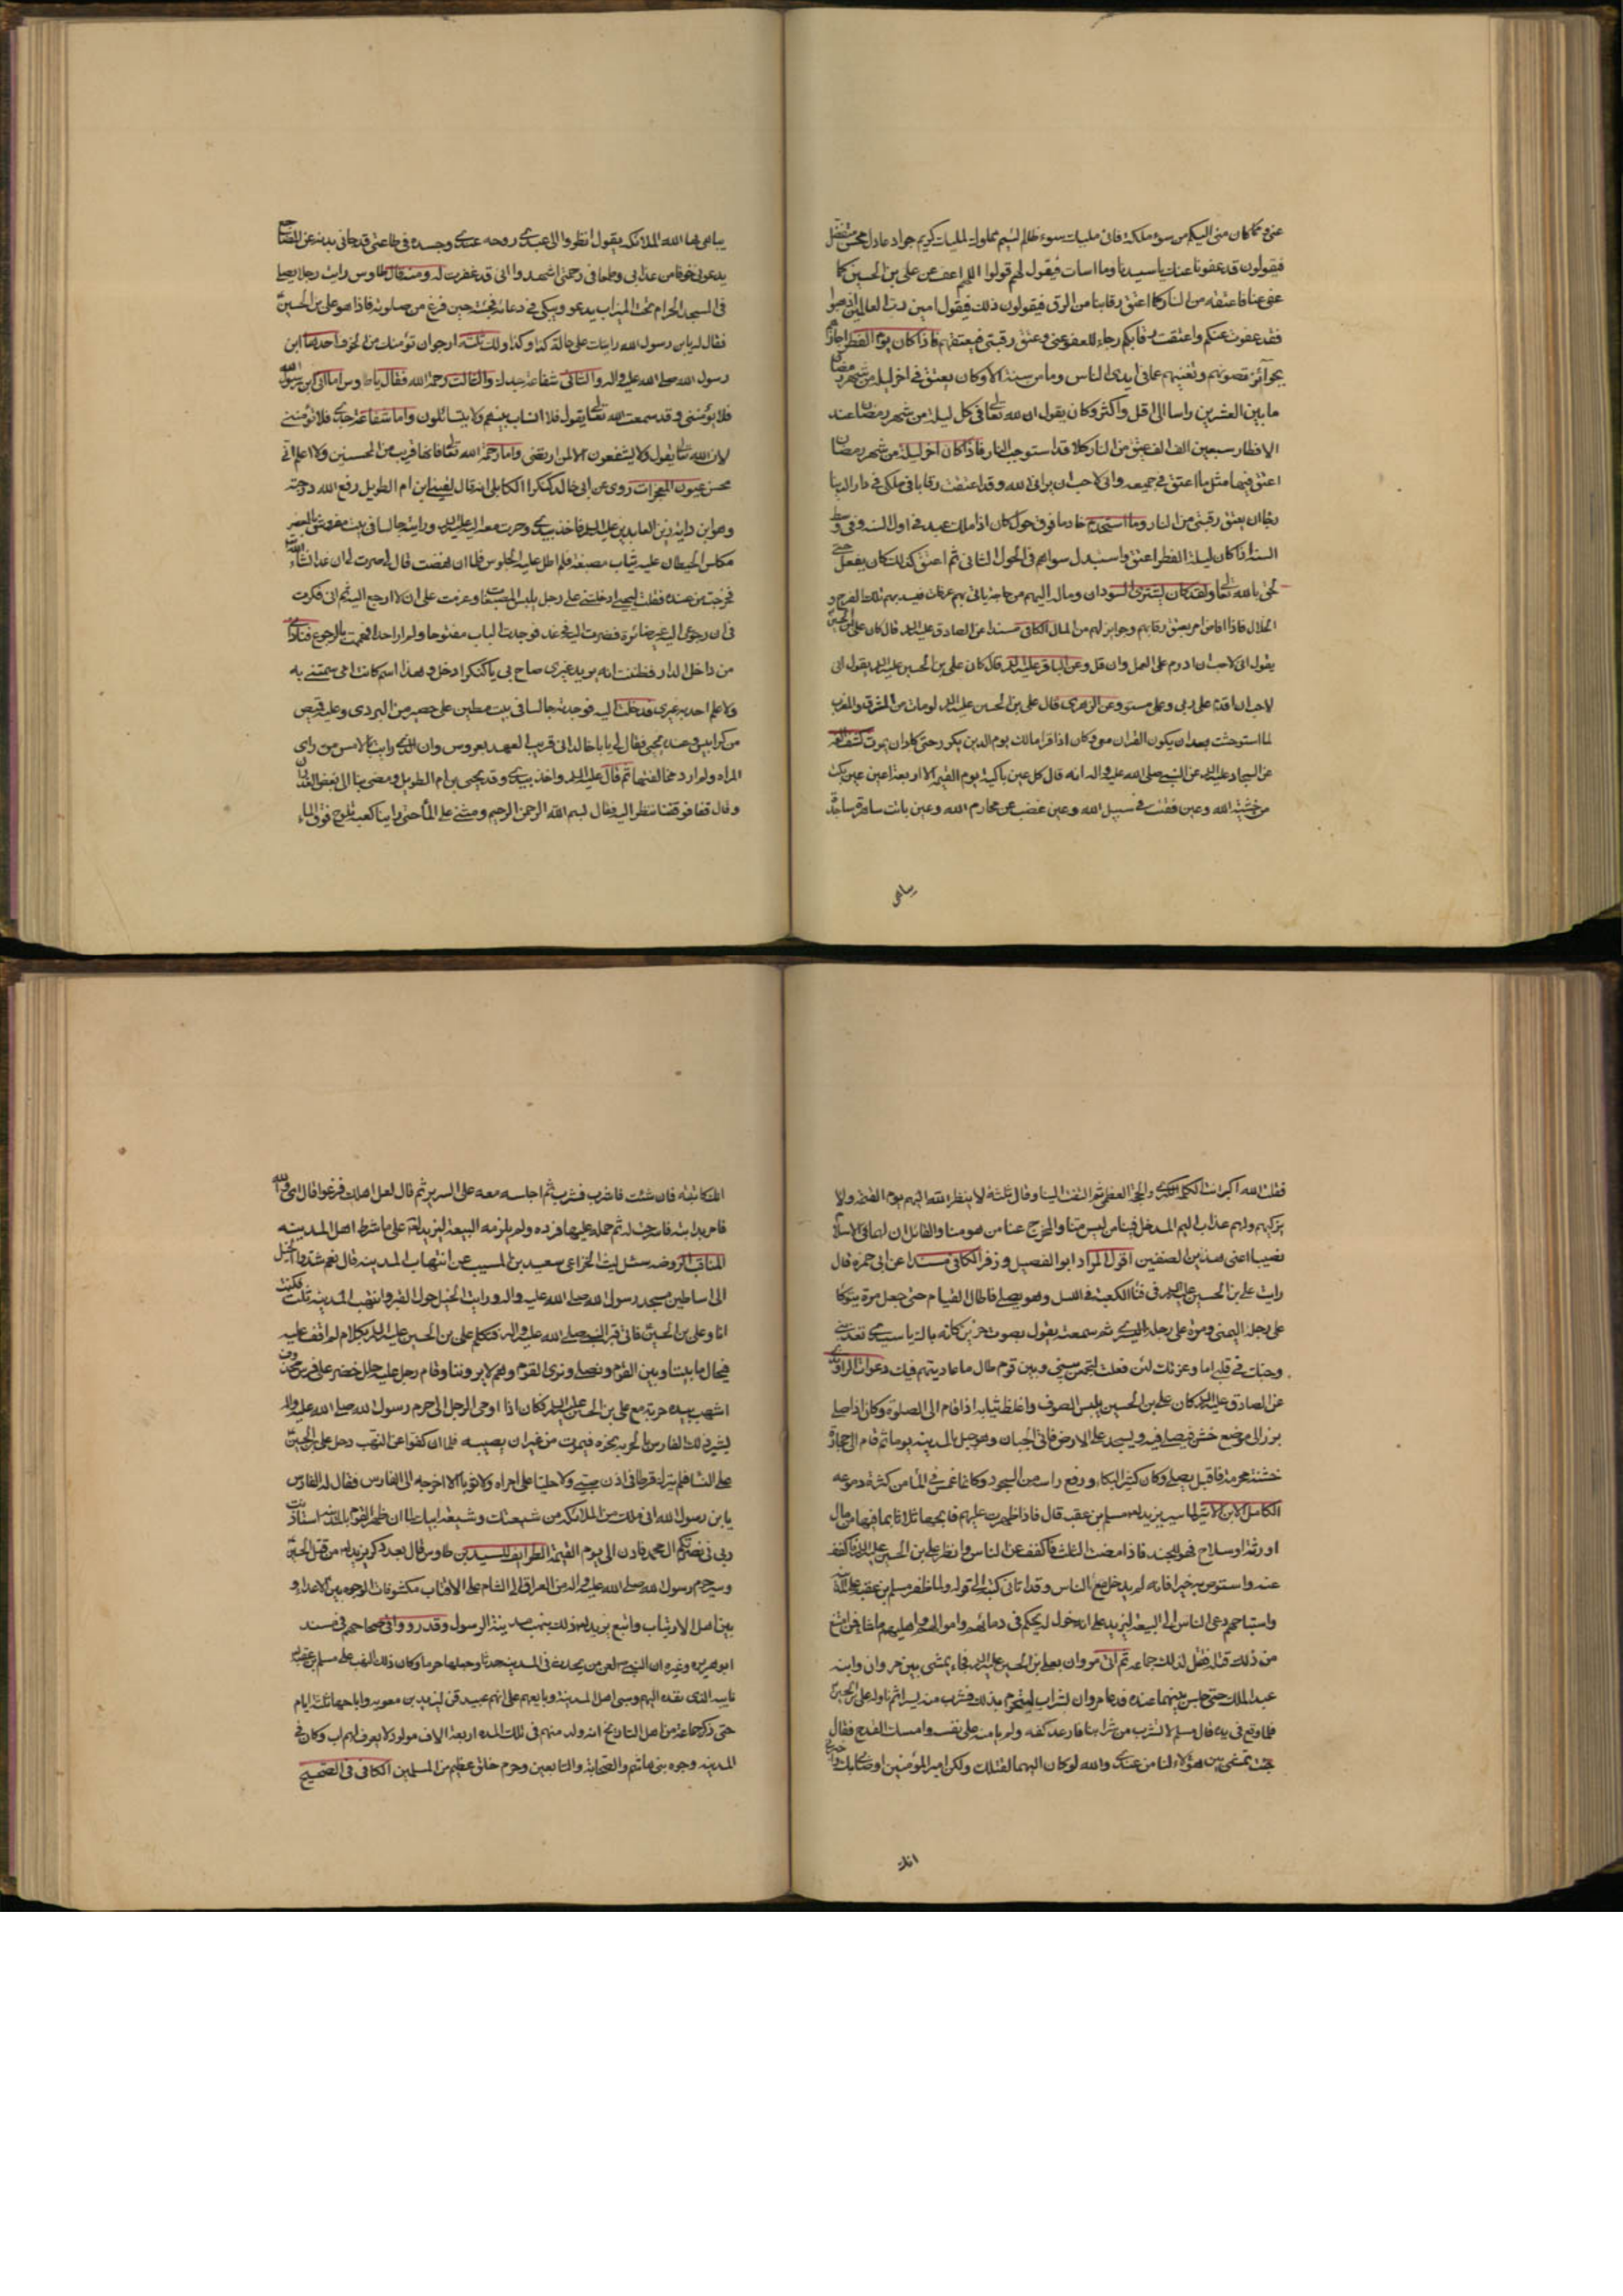 عنى وما كان منى اليكم من سوء ملكة فانى مليك سوء ظالم لئيم مملوك لمليك كريم جواد عادل محسن متفضل
فيقولون قد عفونا عنك يا سيدنا وما اسأت فيقول لهم قولوا اللهم اعف عن على بن الحسين كما
عفى عنا فاعتقه من النار كما اعتق رقابنا من الرق فيقولون ذلك فيقول امين رب العالمين اذهبوا
فقد عفوت عنكم واعتقت رقابكم رجاء للعفو عنى وعتق رقبتى فيعتقهم فاذا كان يوم الفطر اجازهم
بجوائز تصونهم وتغنيهم عما فى ايدى الناس وما من سنة الا وكان يعتق فى اخر ليلة من شهر رمضان
ما بين العشرين راسا الى اقل واكثر وكان يقول ان لله تعالى فى كل ليلة من شهر رمضان عند
الافطار سبعين الف الف عتيق من النار كلا قد استوجب النار فاذا كان اخر ليلة من شهر رمضان
اعتق فيها مثل ما اعتق فى جميعه وانى لاحب ان يرانى الله وقد اعتقت رقابا فى ملكى فى دار الدنيا
رجاء ان يعتق رقبتى من النار وما استخدم خادما فوق حول كان اذا ملك عبدا فى اول السنة او فى وسط
السنة اذا كان ليلة الفطر اعتق واستبدل سواهم فى الحول الثانى ثم اعتق كذلك كان يفعل حتى
لحق بالله تعالى ولقد كان يشترى السودان وما له اليهم من حاجة ياتى بهم عرفات فيسد بهم تلك الفرج و
الخلال فاذا افاض امر بعتق رقابهم وجوايز لهم من المال الكافى مسندا عن الصادق عليه السلام قال كان على بن الحسين
يقول انى لاحب ان ادوم على العمل وان قل وعن الباقر عليه السلام قال كان على بن الحسين عليه السلام يقول انى
لاحب ان اقدم على ربى وعملى مستو وعن الزهرى قال على بن الحسين عليه السلام لو مات من بين المشرق والمغرب
لما استوحشت بعد ان يكون القران معى وكان اذا قرا مالك يوم الدين يكررها حتى كاد ان يموت كشف الغمة
عن السجاد عليه السلام عن النبى صلى الله عليه واله انه قال كل عين باكية يوم القيمة الا اربعة اعين عين بكت
من خشية الله وعين فقئت فى سبيل الله وعين غضت عن محارم الله وعين باتت ساهرة ساجدة
يباهى
يباهى بها الله الملائكة يقول انظروا الى عبدى روحه عندى وجسده فى طاعتى قد جافى بدنه عن المضاجع
يدعونى خوفا من عذابى وطمعا فى رحمتى اشهدوا انى قد غفرت له ومنه قال طاوس رايت رجلا يصلى
فى المسجد الحرام تحت الميزاب يدعو ويبكى فى دعائه فجئته حين فرغ من صلوته فاذا هو على بن الحسين
فقال له يا بن رسول الله رايتك على حالة كذا وكذا ولك ثلثة ارجو ان تؤمنك من الخوف احدها انك ابن
رسول الله صلى الله عليه واله والثانى شفاعة جدك والثالث رحمة الله فقال يا طاوس اما انى ابن رسول الله
فلا يؤمننى وقد سمعت الله تعالى يقول فلا انساب بينهم ولا يتسائلون واما شفاعة جدى فلا تؤمننى
لان الله تعالى يقول ولا يشفعون الا لمن ارتضى واما رحمة الله تعالى فانها قريب من المحسنين ولا اعلم انى
محسن عيون المعجزات روى عن ابى خالد كنكر الكابلى انه قال لقينى ابن ام الطويل رفع الله درجته
وهو ابن داية زين العابدين عليه السلام فاخذ بيدى وصرت معه اليه عليه السلام ورايته جالسا فى بيت مفروش بالمعصفر
مكلس الحيطان عليه ثياب مصبغة فلم اطل عليه الجلوس فلما ان نهضت قال لى صر الى غدا ان شاء الله
فخرجت من عنده فقلت ليحيى ادخلتنى على رجل يلبس المصبغات وعزمت على ان لا ارجع اليه ثم انى فكرت
فى ان رجوعى اليه غير ضائرة فصرت اليه فى غد فوجدت الباب مفتوحا ولم ار احدا فهممت بالرجوع فنادى
من داخل الدار فظننت انه يريد غيرى صاح بى يا كنكر ادخل وهذا اسم كانت امى سمتنى به
ولا علم احد به غيرى فدخلت اليه فوجدته جالسا فى بيت مطين على حصير من البردى وعليه قميص
من كرابيس وعنده يحيى فقال لى يا با خالد انى قريب العهد بعروس وان الذى رايت بالامس من راى
المراة ولم ارد مخالفتها ثم قام عليه السلام واخذ بيدى وبيد يحيى بن ام الطويل ومضى بنا الى بعض الغدران
وقال قفا فوقفنا ننظر اليه فقال بسم الله الرحمن الرحيم ومشى على الماء حتى راينا كعبه تلوح فوق الماء
فقلت الله اكبر انت الكلمة الكبرى والحجة العظمى ثم التفت الينا وقال ثلثة لا ينظر الله اليهم يوم القيمة ولا
يزكيهم ولهم عذاب اليم المدخل فينا من ليس منا والمخرج عنا من هو منا والقائل ان لهما فى الاسلام
نصيبا اعنى هذين الصنفين اقول المراد ابو الفصيل و زفر الكافى مسندا عن ابى حمزة قال
رايت على بن الحسين عليه السلام فى فناء الكعبة فى الليل وهو يصلى فاطال القيام حتى جعل مرة يتوكا
على رجله اليمنى ومرة على رجله اليسرى ثم سمعته يقول بصوت حزين كانه باك يا سيدى تعذبنى
وحبك فى قلبى اما وعزتك لئن فعلت لتجمعن بينى وبين قوم طال ما عاديتهم فيك دعوات الراوندى
عن الصادق عليه السلام كان على بن الحسين يلبس الصوف واغلظ ثيابه اذا قام الى الصلوة وكان اذا صلى
برز الى موضع خشن فيصلى فيه ويسجد على الارض فاتى الجبان وهو جبل بالمدينة يوما ثم قام الى حجارة
خشنة محرمة فاقبل يصلى وكان كثير البكاء ورفع راسه من السجود وكانما غمس فى الماء من كثرة دموعه
الكامل لابن الاثير لما سير يزيد لعنه مسلم بن عقبة قال فاذا ظهرت عليهم فابحها ثلاثا بما فيها من مال
او رثة او سلاح فهو للجند فاذا مضت الثلث فاكفف عن الناس وانظر على بن الحسين عليه السلام فاكفف
عنه واستوص به خيرا فانه لم يدخل مع الناس وقد اتانى كتابه الى قوله ولما ظفر مسلم بن عقبة على المدينة
واستباحهم دعى الناس الى البيعة ليزيد على انهم خول له يحكم فى دمائهم واموالهم واهليهم ما شاء فمن امتنع
من ذلك قتله فقتل لذلك جماعة ثم اتى مروان بعلى بن الحسين عليه السلام فجاء يمشى بين مروان وابنه
عبد الملك حتى جلس بينهما عنده فدعا مروان بشراب ليتحرم بذلك فشرب منه يسيرا ثم ناوله على بن الحسين
فلما وقع فى يده قال مسلم لا تشرب من شرابنا فارعد كفه ولم يامنه على نفسه وامسك القدح فقال
جئت تمشى بين هؤلاء لتامن عندى والله لو كان اليهما لقتلتك ولكن امير المؤمنين اوصانى بك واخبرنى
انك
انك كاتبته فان شئت فاشرب فشرب ثم اجلسه معه على السرير ثم قال لعل اهلك فزعوا قال اى والله
فامر بدابته فاسرجت له ثم حمله عليها فرده ولم يلزمه البيعة ليزيد لعنه على ما شرط اهل المدينه
المناقب الروضه سئل ليث الخزاعى سعيد بن المسيب عن انتهاب المدينه قال نعم شدوا الخيل
الى اساطين مسجد رسول الله صلى الله عليه واله ورايت الخيل حول القبر وانتهب المدينه ثلثا فكنت
انا وعلى بن الحسين فاتى قبر النبى صلى الله عليه واله فيتكلم على بن الحسين عليه السلام بكلام لم اقف عليه
فيحال ما بيننا وبين القوم ونصلى ونرى القوم وهم لا يروننا وقام رجل عليه حلل خضر على فرس محذوف
اشهب بيده حربة مع على بن الحسين عليه السلام فكان اذا اومى الرجل الى حرم رسول الله صلى الله عليه واله
يشير ذلك الفارس بالحربة نحوه فيموت من غير ان يصيبه فلما ان كفوا عن النهب دخل على بن الحسين
على النساء فلم يترك قرطا فى اذن صبى ولا حليا على امراة ولا ثوبا الا اخرجه الى الفارس فقال له الفارس
يا بن رسول الله انى ملك من الملائكة من شيعتك وشيعة ابيك لما ان ظهر القوم بالمدينة استاذنت
ربى فى نصرتكم ال محمد فاذن الى يوم القيمة الطرايف للسيد بن طاوس قال بعد ذكر يزيد لعنه من قتل الحسين
وسير حرم رسول الله صلى الله عليه واله من العراق الى الشام على الاقتاب مكشوفات الوجوه بين الاعداء و
بين اهل الارتياب واتبع يزيد لعنه ذلك بنهب مدينة الرسول وقد رووا فى صحاحهم فى مسند
ابو هريره وغيره ان النبى صلعم لعن من يحدث فى المدينه حدثا وجعلها حرما وكان ذلك النهب على يد مسلم بن عقبة
نايبه الذى نفذه اليهم وسبى اهل المدينة وبايعهم على انهم عبيد قن ليزيد بن معويه واباحها ثلثة ايام
حتى ذكر جماعة من اهل التاريخ انه ولد منهم فى تلك المدة اربعة الاف مولود لا يعرف لهم اب وكان فى
المدينه وجوه بنى هاشم والصحابة والتابعين وحرم خلق عظيم من المسلمين الكافى فى الصحيح